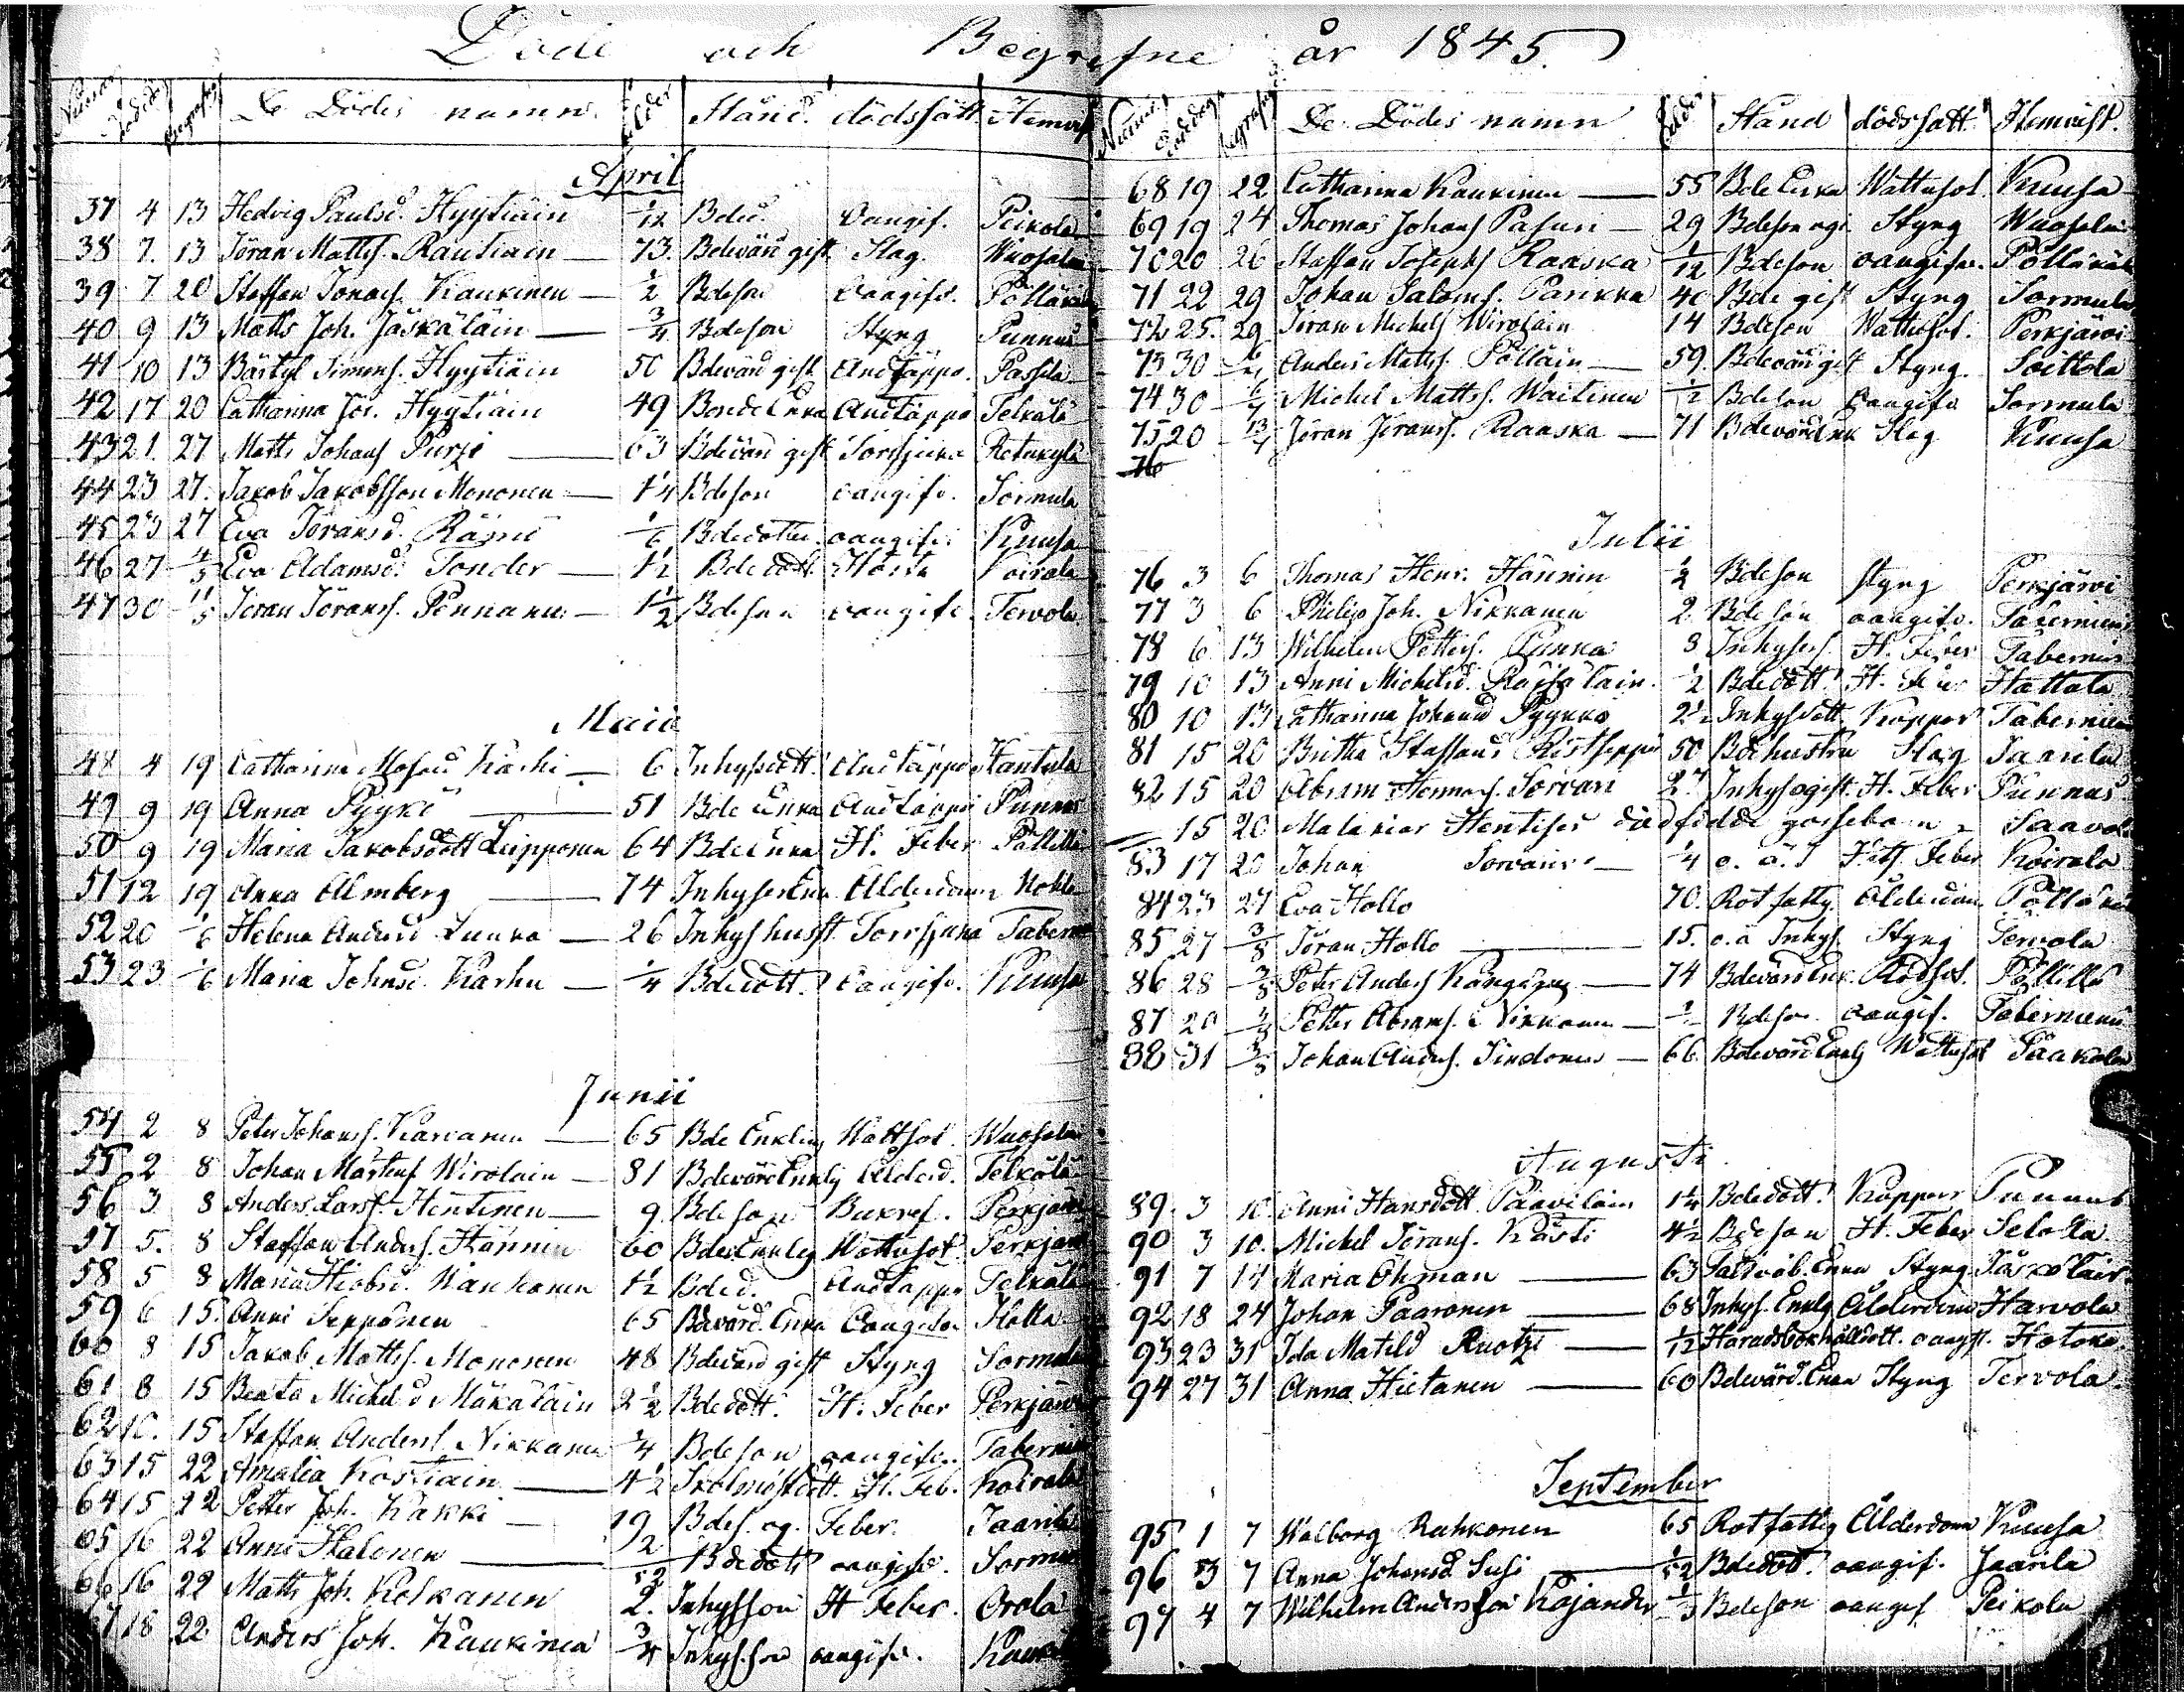 Döde och Begrafne år 1845.
Numer Dödedag Begrafnged De Dödes namn. ålder Stånd. dödssätt Hemvist
April
37 4 13 Hedvig Paulsd. Hyytiäin 1/12 Bded. oangif. Peikola
38 7. 13 Jöran Matts. Rautiain — 73. Bdevärd gift Slag. Wuosalm
39 7 20 Staffan Jonaes. Kaukinen — 1/2 Bdeson oangifv. Pölläkäl
40 9 13 Matts Joh. Jäskäläin — 3/4 Bdeson Styng Punnus
41 10 13 Bärtyl Simons. Hyytiäin 50 Bdevärd gift Andtäppa. Passila
42 17 20 Catharina Jör. Hyytiäin 49 Bonde Enka Andtäppa Telkälä
43 21. 27 Matts Johans Purzi — 63 Bdevärd gift Torrsjuka
44 23 27. Jakob Jakobsson Mononen — 1/4 Bdeson oangifv. Sormula
45 23 27 Eva Joransd. 1/6 Bdedotter oangifv. Kuusa
46 27 4/5 Eva Adamsd. Tonder — 1 1/2 Bdedott. Hosta Koirala
47 30 11/5 Jöran Jörans. Pennanen — 1 1/2 Bdeson oangifv. Tervola
Maii
48 4 19 Catharina Mosesd Karhi — 6 Inhysdott. Andtäppa Hantula
49 9 19 Anna Pyykö — 51 Bde Enka Andtäppa Punnus
50 9 19 Maria Jakobsdott Leipponen 64 Bde Enka H. Feber Pällilä
51 12 19 Anna Almberg — 74 Inhyses Enk. Ålderdom
52 20 1/6 Helena Andersd Lunka — 26 Inhys hust. Torrsjuka Taberm
53 23 1/6 Maria Johnsd. Karhu — 1/4 Bdedott. oangifv. Kuusa
Junii
54 2 8 Peter Johans. Karvanen — 65 Bde Enkling Wattsot. Wuosalm
55 2 8 Johan Mårtens Wirolain — 81 Bdevärd Enklg Ålderd. Telkälä
56 3 8 Anders Lars. Hentinen — 9 Bdeson Bukref. Perkjärvi
57 5. 8 Staffan Anders. Hännin 60 Bde Enkleg Wattusot. Perkjärv
58 5 8 Maria Hiobsd. Wankonen 1 1/2 Bded. Andtäppa Telkälä
59 6 15. Anni Sepponen 65 Bdevärd. Enka oangifv. Holla
60 8 15 Jakob Matts. Mononen 48 Bdevärd gift Styng Sormula
61 8 15 Beata Michelsd Mäkäläin 2 1/2 Bdedott. H. Feber Perkjärvi
62 10. 15 Staffan Anders. Nikkanen 3/4 Bdeson oangifv. Taberm
63 15 22 Amalia Kostiain — 4 1/2 H. Feb. Koirala
64 15 22 Petter Joh. Kakki — 19 Bdes. og. Feber. Jaarila
65 16 22 Anni Halonen — Bdedott oangifv. Sormula
66 16 22 Matts Joh. Kolkanen 2. Inhysson H Feber. Orola
67 18 22 Anders Joh. Kaukinen 3/4 Inhysson oangifv.
Numer Dödedag begrafnged De Dödes namn ålder Stånd dödssätt Hemvist.
68 19 22 Catharina Kaukinen — 55 Bde Enka Wattusot Kuusa
69 19 24 Thomas Johans Pasuri — 29 Bdeson ogi Styng Wuosalmi
70 20 26 Staffan Josephs Raaska 1/12 Bdeson oangifv. Pölläkäl
71 22 29 Johan Saloms. Pankka 40 Bde gift Styng Sormula
72 25. 29 Jöran Michels Wirolain 14 Bdeson Wattusot. Perkjärvi
73 30 6/7 Anders Matts. Pölläin — 59. Bdevärd gift Styng. Soittola
74 30 6/7 Michel Matts. Waitinen 1/2 Bdeson oangifv Sormula
75 20 13/7 Jöran Jörans. Raaska — 71 Bdevärd Enk Slag Kuusa
76
Julii
76 3 6 Thomas Henr. Hännin 1/2 Bdeson styng Perkjärvi
77 3 6 Philip Joh. Nikkanen 2. Bdeson oangifv. Taberniem
78 6 13 Wilhelm Petters. Punka 3 Inhyses. H. Feber Tabernien
79 10 13 Anni Michelsd. Räisäläin. 1/2 Bdedott. H. Feber Hattala
80 10 13 Catharina Johansd Pyykkö 2 1/2 Inhysdott Koppor Tabernien
81 15 20 Britha Staffansd Ristseppä 50 Bdehustru Slag Jaarila
82 15 20 Abram Hennas. Sorvari Inhys ogift. H. Feber Punnus
— 15 20 Hentises dödfödde gossebarn Saavol
83 17 20 Johan Sorvari — 1/4 o. ä. Feber Koirala
84 23 27 Eva Hollo 70. Rotfattig Ålderdom Pölläkä
85 27 3/8 Jöran Hollo — 15. o. ä Inhys. Styng Tervola
86 28 3/8 Peter Anders — 74 Bdevärd Enk. Rödsot. Pällilä
87 29 3/8 Petter Abrams. Nikkanen — Bdeson oangif. Taberniemi
88 31 3/8 Johan Anders. — 66 Bdevärd Enklg Wattusot
Augusti
89. 3 10. Anni Hansdott. Paavilain 1 1/4 Bdedott. Koppor Punnus
90 3 10. Michel Jörans. Kästi 4 1/2 Bdeson H. Feber
91 7 14 Maria Öhman — 63 Enka Styng
92 18 24 Johan Paaronen — 68 Inhys. Enklg Ålderdom Harvola
93 23 31 Ida Matild Ruotzi — 1/12 Häradsbokhålldott. oangif.
94 27 31 Anna Hietanen — 60 Bdevärd. Enka Styng Tervola.
September
95 1 7 Walborg Ruhkonen 65 Rotfattig Ålderdom Kuusa
96 3 7 Anna Johansd Susi — Bdedott. oangif. Jaarila
97 4 7 Wilhelm Andersson Kojander 1/3 Bdeson oangif Peikola